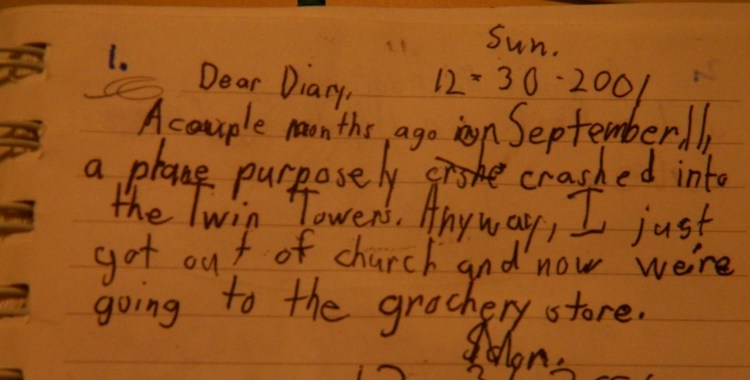 Sun.
1.
Dear Diary, 12-30-2001
A couple months ago on September 11,
a plane purposely crashed into
the Twin Towers. Anyway, I just
got out of church and now we're
going to the grochery store.
Mon.